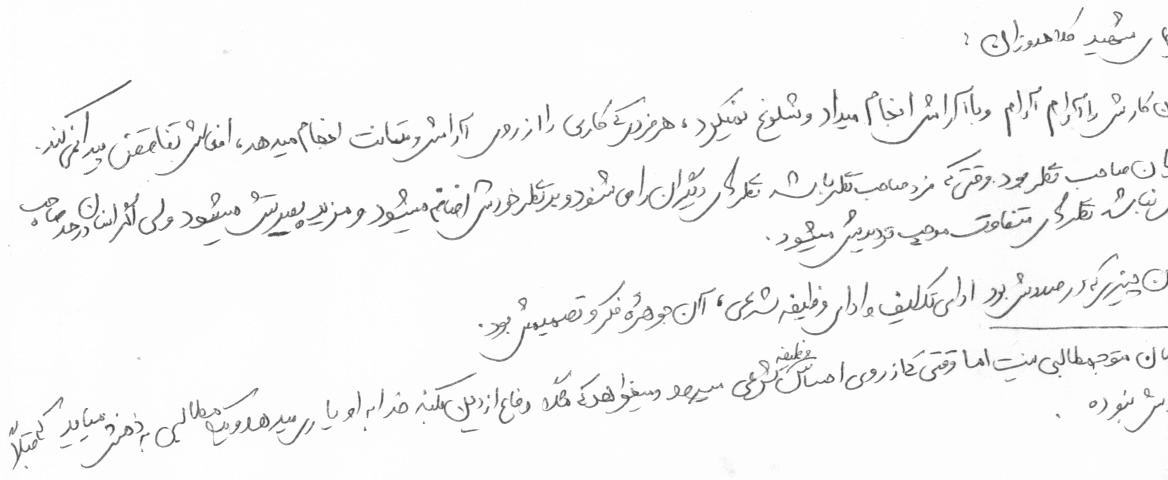 شهید کلاهدوزان :
کارش را آرام آرام و با آرامش انجام میداد و شلوغ نمیکرد ، هر فردی که کاری را از روی آرامش و متانت انجام میدهد ، افعالش تناقض پیدا نمی‌کند .
صاحب تفکر بود . وقتی که فرد صاحب تفکر باشد تفکرهای دیگران را می شنود و بر تفکر خودش اضافه میشود و مزید بصیرتش میشود ولی اگر انسان در حد صاحب
نباشد تفکرهای متفاوت موجب تردیدش میشود .
چیزی که در صددش بود ادای تکلیف و ادای وظیفه شرعی ، آن جوهرهٔ فکر و تصمیمش بود .
متوجه مطالبی نیست اما وقتی که از روی احساس وظیفه شرعی میرود و میخواهد که دفاع از دین بکند خدا به او یاری میدهد و یک مطالبی به ذهنش میاید که قبلاً
نبوده .